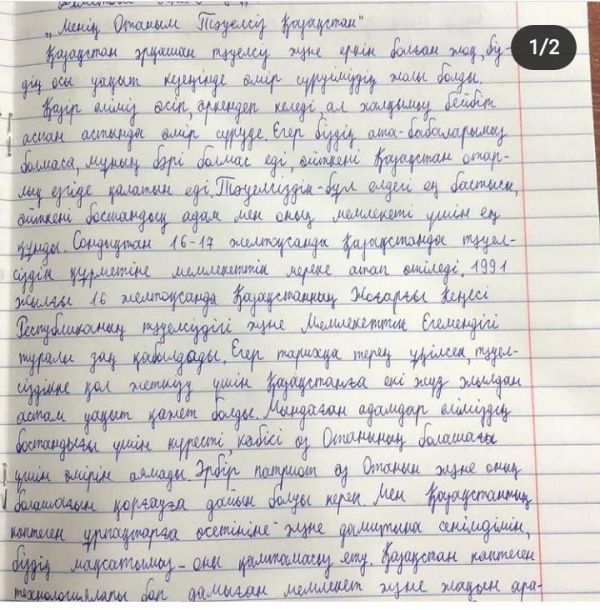 1/2
„Менің Отаным Тәуелсіз Қазақстан"
Қазақстан әрқашан тәуелсіз және еркін болған жоқ, бұ-
дің осы уақыт кезеңінде өмір сүруіміздің жолы болды.
Қазір еліміз өсіп, өркендеп келеді, ал халқымыз бейбіт
аспан астында өмір сүруде. Егер біздің ата-бабаларымыз
болмаса, мұның бәрі болмас еді, өйткені Қазақстан отар-
лық езгіде қалатын еді. Тәуелсіздік - бұл елдегі ең бастысы,
өйткені бостандық адам мен оның мемлекеті үшін ең
құнды. Сондықтан 16-17 желтоқсанда Қазақстанда тәуел-
сіздік құрметіне мемлекеттік мереке атап өтіледі. 1991
жылғы 16 желтоқсанда Қазақстанның Жоғарғы Кеңесі
Республиканың тәуелсіздігі және Мемлекеттік Егемендігі
туралы заң қабылдады. Егер тарихқа терең үңілсек, тәуел-
сіздікке қол жеткізу үшін Қазақстанға екі жүз жылдан
астам уақыт қажет болды. Мыңдаған адамдар еліміздің
бостандығы үшін күресті, көбісі өз Отанының болашағы
үшін өмірін аямады. Әрбір патриот өз Отанын және оның
болашағын қорғауға дайын болуы керек. Мен Қазақстанның
көптеген ұрпақтарға өсетініне және дамитына сенімдімін,
біздің мақсатымыз - оны қамтамасыз ету. Қазақстан көптеген
технологиялары бар дамыған мемлекет және жақын ара-